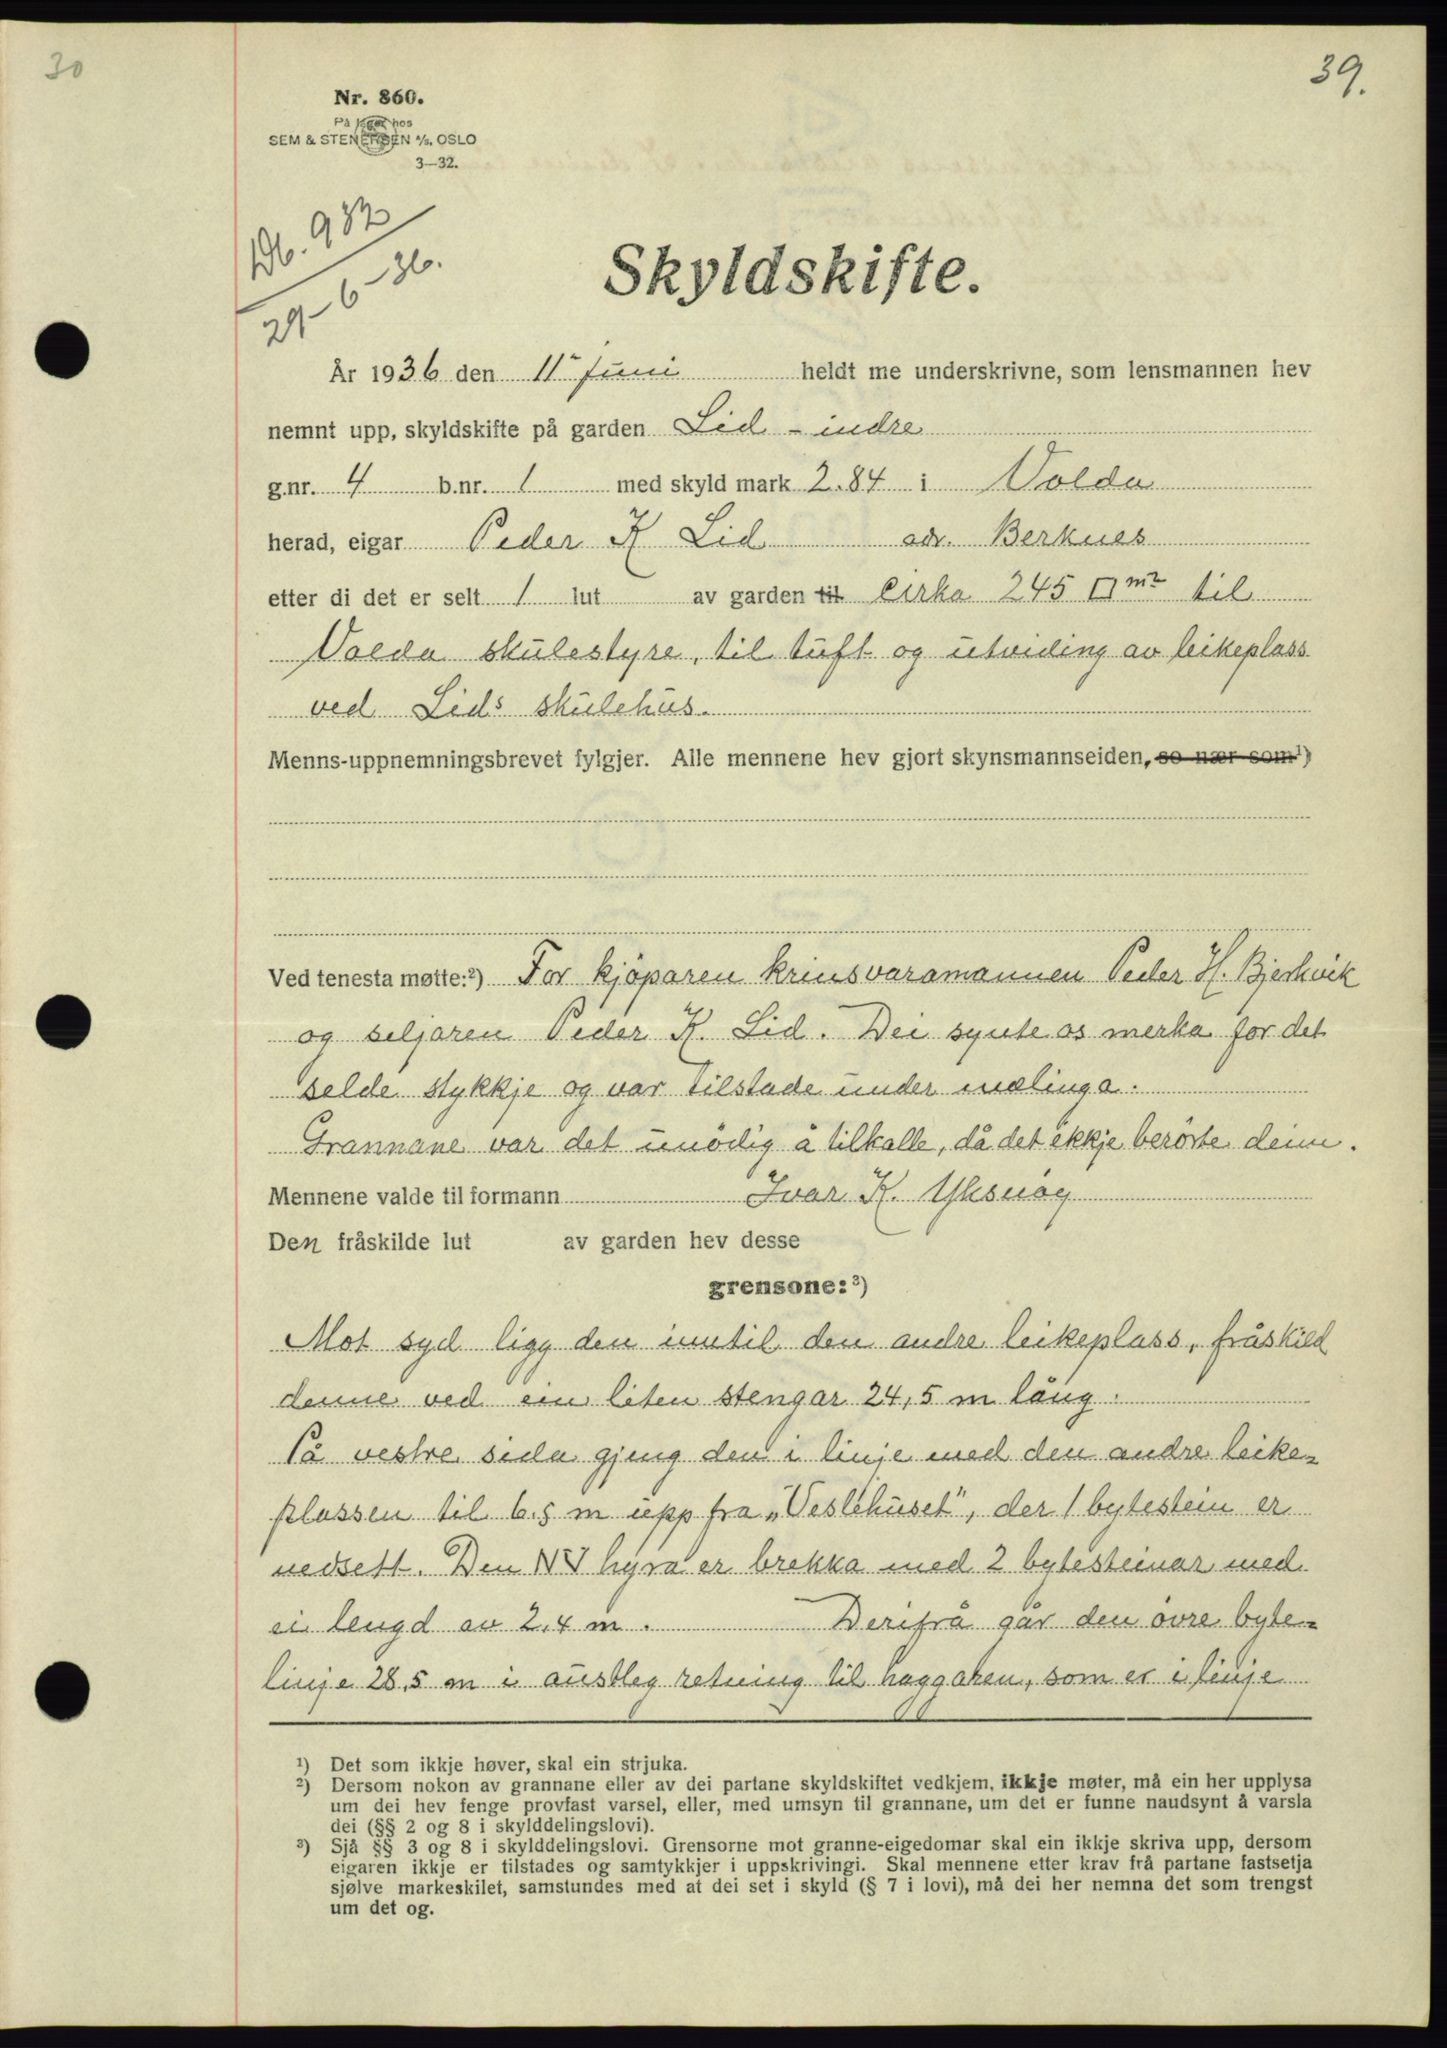 30
39.
Nr. 860.
På lager hos
SEM & STENERSEN A/S. OSLO
3—32.
Db. 982
29-6-36.
Skyldskifte.
År 1936 den 11te juni heldt me underskrivne, som lensmannen hev
nemnt upp, skyldskifte på garden Lid - indre
g.nr. 4 b.nr. 1 med skyld mark 2.84 i Volda
herad, eigar Peder K Lid adr. Berknes
etter di det er selt 1 lut av garden til cirka 245 □ m² til
Volda skulestyre, til tuft og utviding av leikeplass
ved Lids skulehus.
Menns-uppnemningsbrevet fylgjer. Alle mennene hev gjort skynsmannseiden, so nær som¹)
Ved tenesta møtte:²) For kjöparen krinsvaramannen Peder H. Bjerkvik
og seljaren Peder K. Lid. Dei synte os merka for det
selde stykkje og var tilstade under mælinga.
Grannane var det unödig å tilkalle, då det ikkje berörte deim.
Mennene valde til formann Ivar K. Yksnöy
Den fråskilde lut av garden hev desse
grensone:³)
Mot syd ligg den inntil den andre leikeplass, fråskild
denne ved ein liten stengar 24,5 m lång.
På vestre sida gjeng den i linje med den andre leike=
plassen til 6.5 m upp fra „Veslehuset", der 1 bytestein er
nedsett. Den NV hyrna er brekka med 2 bytesteinar med
ei lengd av 2,4 m. Derifrå går den övre byte=
linje 28,5 m i austleg retning til haggaren, som er i linje
¹) Det som ikkje høver, skal ein strjuka.
²) Dersom nokon av grannane eller av dei partane skyldskiftet vedkjem, ikkje møter, må ein her upplysa
um dei hev fenge provfast varsel, eller, med umsyn til grannane, um det er funne naudsynt å varsla
dei (§§ 2 og 8 i skylddelingslovi).
³) Sjå §§ 3 og 8 i skylddelingslovi. Grensorne mot granne-eigedomar skal ein ikkje skriva upp, dersom
eigaren ikkje er tilstades og samtykkjer i uppskrivingi. Skal mennene etter krav frå partane fastsetja
sjølve markeskilet, samstundes med at dei set i skyld (§ 7 i lovi), må dei her nemna det som trengst
um det og.